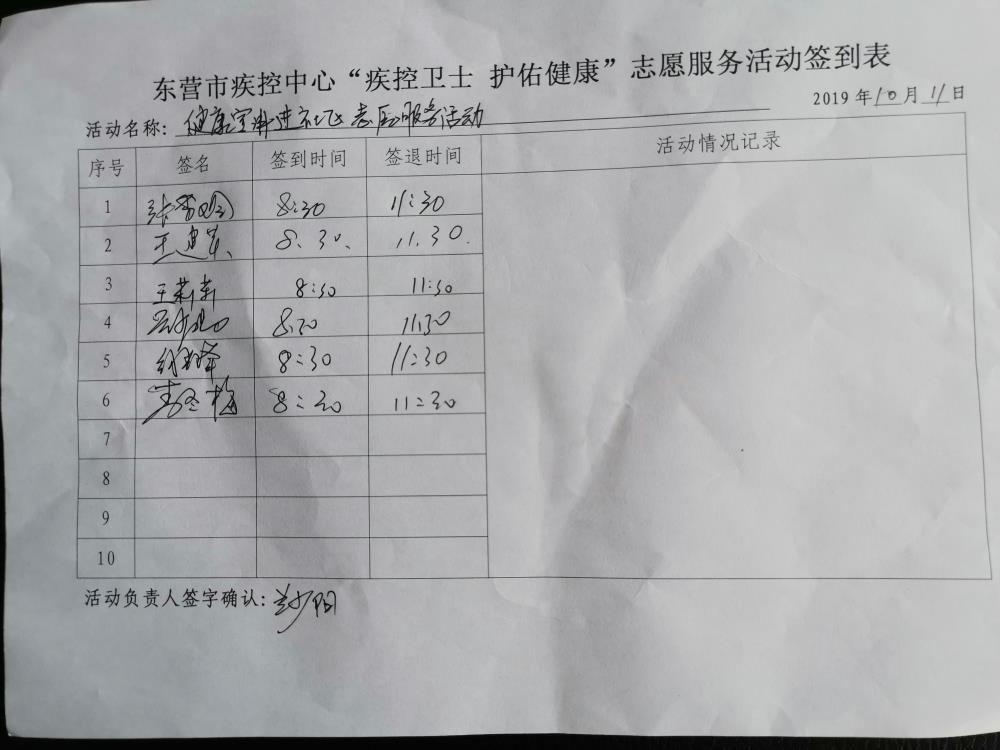 东营市疾控中心“疾控卫士 护佑健康”志愿服务活动签到表
2019年10月11日
活动名称：健康宣讲进社区志愿服务活动
序号 签名 签到时间 签退时间 活动情况记录
1 8:30 11:30
2 王建 8.30. 11.30.
3 王莉莉 8:30 11:30
4 8:30 11:30
5 8:30 11:30
6 李冬梅 8:30 11:30
7
8
9
10
活动负责人签字确认：